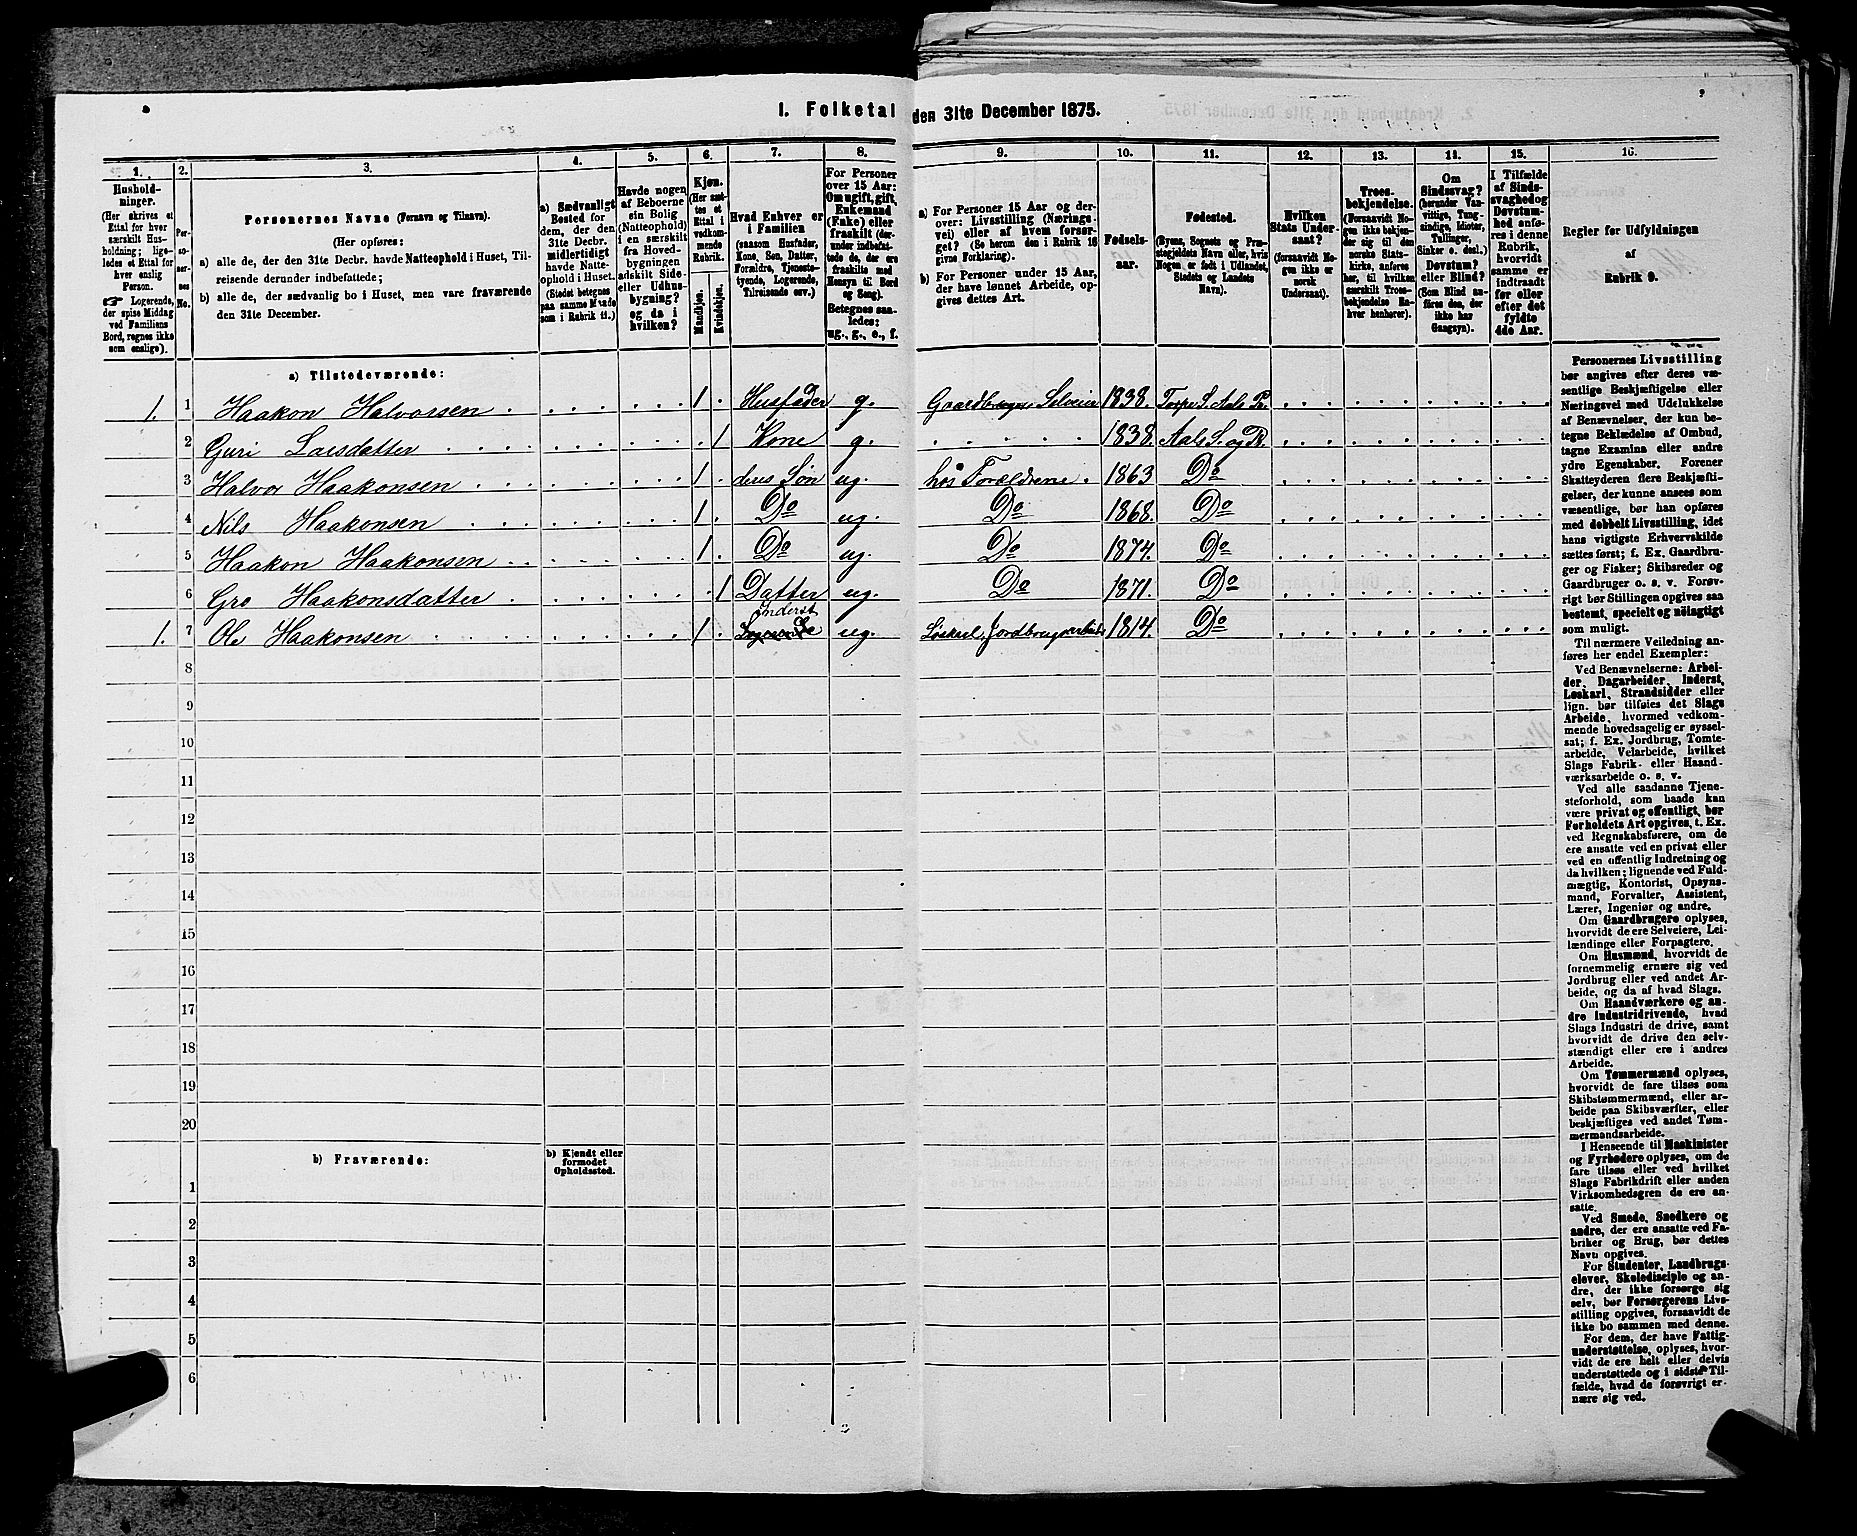 1. Folketal den 31te December 1875.
1. 2. 3. 4. 5. 6. 7. 8. 9. 10. 11. 12. 13. 14. 15. 16.
Hushold-
ninger.
(Her skrives et
Ettal for hver
særskilt Hus-
holdning; lige-
ledes et Ettal for
hver enslig
Person.
☞ Logerende,
der spise Middag
ved Familiens
Bord, regnes ikke
som enslige).
Per-
so-
ner-
nes
No.
Personernes Navne (Fornavn og Tilnavn).
(Her opføres:
a) alle de, der den 31te Decbr. havde Natteophold i Huset, Til-
reisende derunder indbefattede;
b) alle de, der sædvanlig bo i Huset, men vare fraværende
den 31te December.
a) Sædvanligt
Bosted for
dem, der den
31te Decbr.
midlertidigt
havde Natte-
ophold i Huset.
(Stedet betegnes
paa samme Maade
som i Rubrik 11.)
Havde nogen
af Beboerne
sin Bolig
(Natteophold)
i en særskilt
fra Hoved-
bygningen
adskilt Side-
eller Udhus-
bygning?
og da i
hvilken?
Kjøn.
(Her sæt-
tes et
Ettal i
vedkom-
mende
Rubrik.
Mandkjøn.
Kvindekjøn.
Hvad Enhver er
i Familien
(saasom Husfader,
Kone, Søn, Datter,
Forældre, Tjeneste-
tyende, Logerende,
Tilreisende osv.)
For Personer
over 15 Aar:
Om ugift, gift,
Enkemand
(Enke) eller
fraskilt (der-
under indbefat-
tede de, der ere
fraskilte med
Hensyn til Bord
og Seng).
Betegnes saa-
ledes:
ug., g., e., f.
a) For Personer 15 Aar og der-
over: Livsstilling (Nærings-
vei) eller af hvem forsør-
get? (Se herom den i Rubrik 16
givne Forklaring).
b) For Personer under 15 Aar,
der have lønnet Arbeide, op-
gives dettes Art.
Fødsels-
aar.
Fødested.
(Byens, Sognets og Præ-
stegjeldets Navn eller, hvis
Nogen er født i Udlandet,
Stedets og Landets
Navn).
Hvilken
Stats Under-
saat?
(forsaavidt No-
gen ikke er
norsk
Undersaat).
Troes-
bekjendelse.
(Forsaavidt No-
gen ikke bekjen-
der sig til den
norske Stats-
kirke, anføres
her, til hvilken
særskilt Troes-
bekjendelse En-
hver henhører).
Om
Sindssvag?
(herunder Van-
vittige, Tung-
sindige, Idioter,
Tullinger,
Sinker o. desl.)
Døvstum?
eller Blind?
(Som Blind an-
føres den, der
ikke har
Gangsyn).
I Tilfælde
af Sinds-
svaghed og
Døvstum-
hed anfø-
res i denne
Rubrik,
hvorvidt
samme er
indtraadt
før eller
efter det
fyldte
4de Aar.
Regler for Udfyldningen
af
Rubrik 9.
a) Tilstedeværende:
1. 1 Haakon Halvorsen 1 Husfader g. Gaardbruger, Selveier 1838. Torpe S. Aals Pr.
2 Guri Larsdatter 1 Kone g. 1838. Aals S. og Pr.
3 Halvor Haakonsen 1 deres Søn ug. hos Forældrene 1863 Do
4 Nils Haakonsen 1 Do ug. Do 1868. Do
5 Haakon Haakonsen 1 Do ug. Do 1874. Do
6 Gro Haakonsdatter 1 Datter ug. Do 1871. Do
Inderst
1. 7 Ole Haakonsen 1 ug. Løskarl, Jordbrugsarbeide 1814. Do
8
9
10
11
12
13
14
15
16
17
18
19
20
b) Fraværende:
b) Kjendt eller
formodet
Opholdssted.
1
2
3
4
5
6
Personernes Livsstilling
bør angives efter deres væ-
sentlige Beskjæftigelse eller
Næringsvei med Udelukkelse
af Benævnelser, der kun be-
tegne Beklædelse af Ombud,
tagne Examina eller andre
ydre Egenskaber. Forener
Skatteyderen flere Beskjæfti-
gelser, der kunne ansees som
væsentlige, bør han opføres
med dobbelt Livsstilling, idet
hans vigtigste Erhvervskilde
sættes først; f. Ex. Gaardbru-
ger og Fisker; Skibsreder og
Gaardbruger o. s. v. Forøv-
rigt bør Stillingen opgives saa
bestemt, specielt og nøiagtigt
som muligt.
Til nærmere Veiledning an-
føres her endel Exempler:
Ved Benævnelserne: Arbei-
der, Dagarbeider, Inderst,
Løskarl, Strandsidder eller
lign. bør tilføies det Slags
Arbeide, hvormed vedkom-
mende hovedsagelig er syssel-
sat; f. Ex. Jordbrug, Tomte-
arbeide, Veiarbeide, hvilket
Slags Fabrik- eller Haand-
værksarbeide o. s. v.
Ved alle saadanne Tjene-
steforhold, som baade kan
være privat og offentligt, bør
Forholdets Art opgives, t. Ex.
ved Regnskabsførere, om de
ere ansatte ved en privat eller
ved en offentlig Indretning og
da hvilken; lignende ved Fuld-
mægtig, Kontorist, Opsyns-
mand, Forvalter, Assistent,
Lærer, Ingeniør og andre.
Om Gaardbrugere oplyses,
hvorvidt de ere Selveiere, Lei-
lændinge eller Forpagtere.
Om Husmænd, hvorvidt de
fornemmelig ernære sig ved
Jordbrug eller ved andet Ar-
beide, og da af hvad Slags.
Om Haandværkere og an-
dre Industridrivende, hvad
Slags Industri de drive, samt
hvorvidt de drive den selv-
stændigt eller ere i andres
Arbeide.
Om Tømmermænd oplyses,
hvorvidt de fare tilsøs som
Skibstømmermænd, eller ar-
beide paa Skibsværfter, eller
beskjæftiges ved andet Tøm-
mermandsarbeide.
I Henseende til Maskinister
og Fyrbødere oplyses, om de
fare tilsøs eller ved hvilket
Slags Fabrikdrift eller anden
Virksomhedsgren de ere an-
satte.
Ved Smede, Snedkere og
andre, der ere ansatte ved Fa-
briker og Brug, bør dettes
Navn opgives.
For Studenter, Landbrugs-
elever, Skoledisciple og an-
dre, der ikke forsørge sig
selv, bør Forsørgerens Livs-
stilling opgives, forsaavidt de
ikke bo sammen med denne.
For dem, der have Fattig-
understøttelse, oplyses, hvor-
vidt de ere helt eller delvis
understøttede og i sidste Til-
fælde, hvad de forøvrigt er-
nære sig ved.